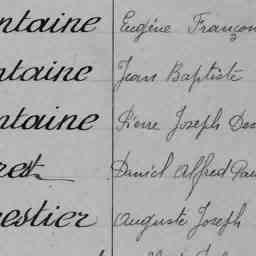 ntaine Eugène François
ntaine Jean Baptiste
ntaine Pierre Joseph
rest Daniel Alfred
restier Auguste Joseph